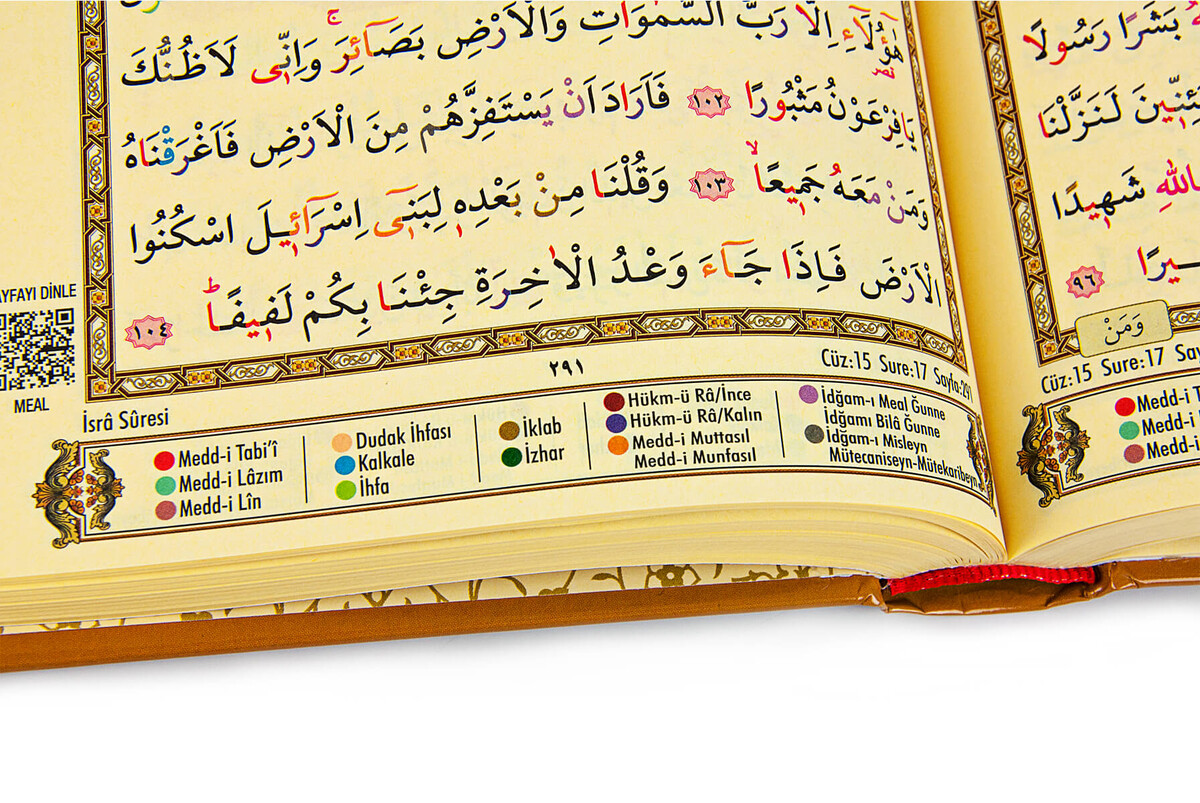 هٰٓؤُ۬لَٓاءِ اِلَّا رَبُّ السَّمٰوَاتِ وَالْاَرْضِ بَصَٓائِرَۚ وَاِنّ۪ي لَاَظُنُّكَ
يَافِرْعَوْنُ مَثْبُورًا ﴿١٠٢﴾ فَاَرَادَ اَنْ يَسْتَفِزَّهُمْ مِنَ الْاَرْضِ فَاَغْرَقْنَاهُ
وَمَنْ مَعَهُ جَم۪يعًاۙ ﴿١٠٣﴾ وَقُلْنَا مِنْ بَعْدِه۪ لِبَن۪ٓي اِسْرَٓائ۪يلَ اسْكُنُوا
الْاَرْضَ فَاِذَا جَٓاءَ وَعْدُ الْاٰخِرَةِ جِئْنَا بِكُمْ لَف۪يفًاۜ ﴿١٠٤﴾
AYFAYI DİNLE
MEAL
İsrâ Sûresi
٢٩١
Cüz:15 Sure:17 Sayfa:291
Medd-i Tabi'î
Medd-i Lâzım
Medd-i Lîn
Dudak İhfası
Kalkale
İhfa
İklab
İzhar
Hükm-ü Râ/İnce
Hükm-ü Râ/Kalın
Medd-i Muttasıl
Medd-i Munfasıl
İdğam-ı Meal Ğunne
İdğamı Bilâ Ğunne
İdğam-ı Misleyn
Mütecaniseyn-Mütekaribeyn
بَشَرًا رَسُولًا
لَنَزَّلْنَا
شَه۪يدًا
٩٦
وَمَنْ
Cüz:15 Sure:17
Medd-i
Medd-i
Medd-i